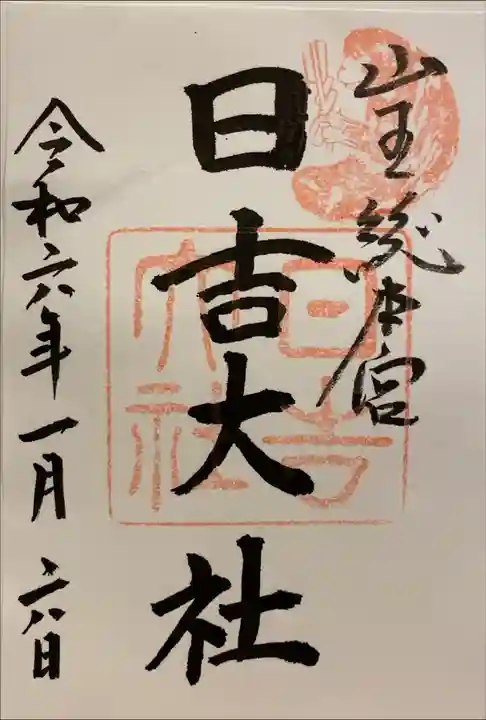 山王総本宮
日吉大社
令和六年一月六日
日吉大社